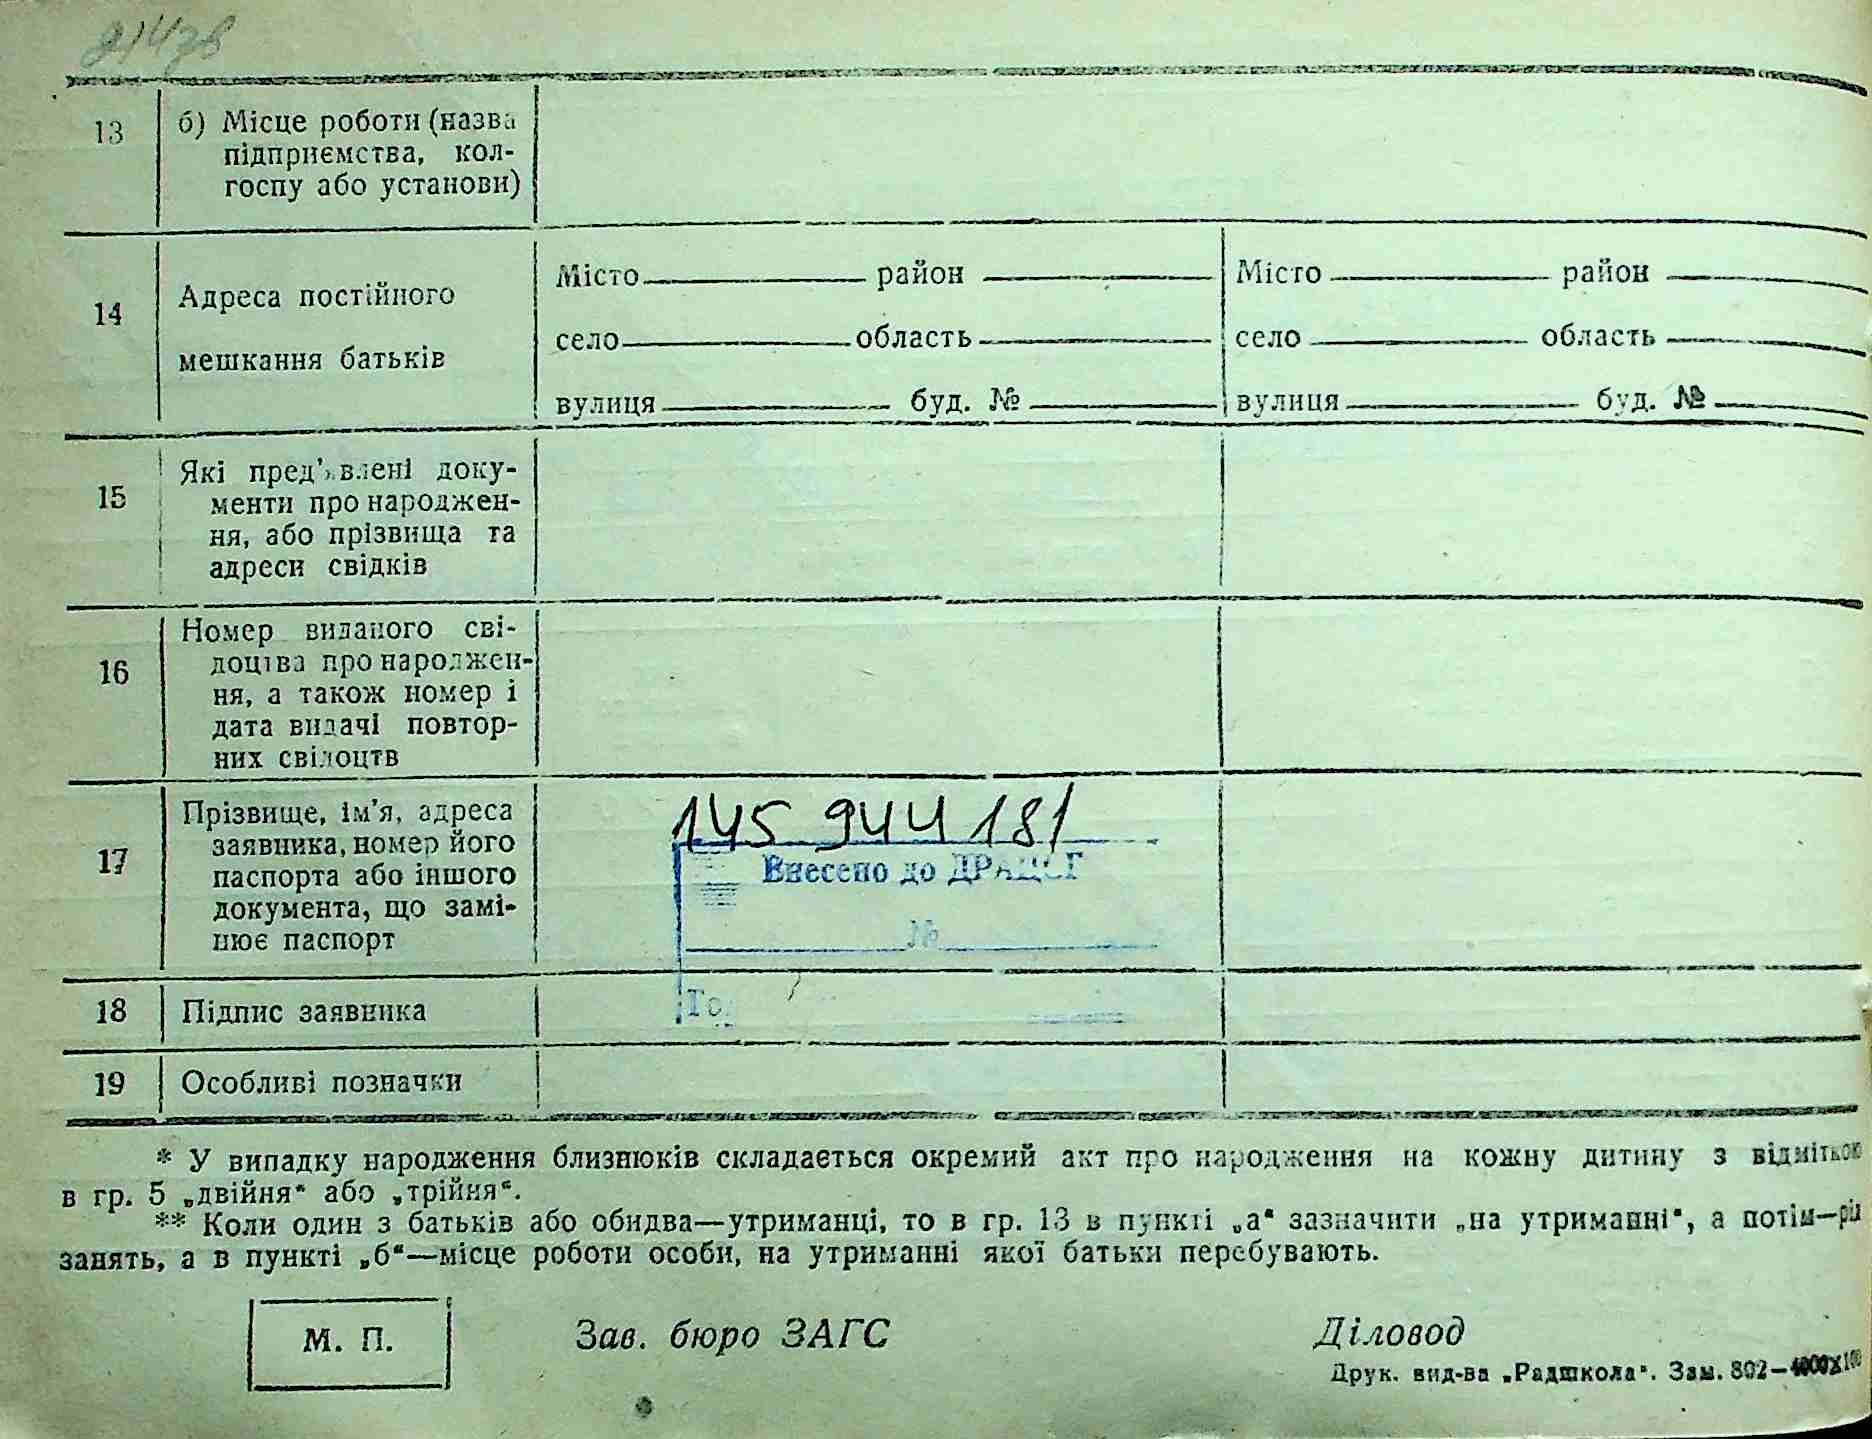 13
б) Місце роботи (назва
підприємства, кол-
госпу або установи)
14
Адреса постійного
мешкання батьків
Місто район
село область
вулиця буд. №
Місто район
село область
вулиця буд. №
15
Які пред'явлені доку-
менти про народжен-
ня, або прізвища та
адреси свідків
16
Номер виданого сві-
доцтва про народжен-
ня, а також номер і
дата видачі повтор-
них свідоцтв
17
Прізвище, ім'я, адреса
заявника, номер його
паспорта або іншого
документа, що замі-
нює паспорт
145 944 181
Внесено до ДРАЦСГ
№
18
Підпис заявника
19
Особливі позначки
* У випадку народження близнюків складається окремий акт про народження на кожну дитину з відміткою
в гр. 5 „двійня“ або „трійня“.
** Коли один з батьків або обидва—утриманці, то в гр. 13 в пункті „а“ зазначити „на утриманні“, а потім—рід
занять, а в пункті „б“—місце роботи особи, на утриманні якої батьки перебувають.
М. П.
Зав. бюро ЗАГС
Діловод
Друк. вид-ва „Радшкола“. Зам. 802—4000X100